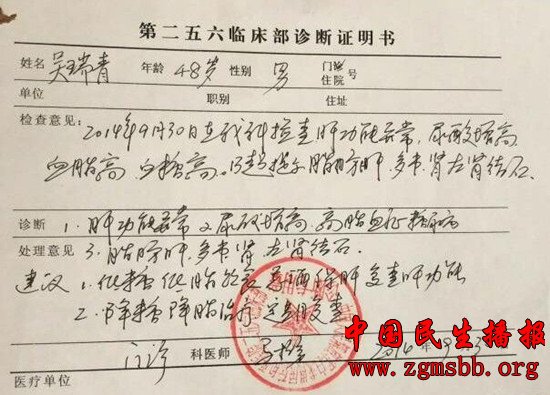 第二五六临床部诊断证明书
姓名 吴瑞青 年龄 48岁 性别 男 门诊住院号
单位 职别 住址
检查意见： 2014年9月30日在我科检查肝功能异常，尿酸增高
血脂高，血糖高。B超提示脂肪肝，多囊肾左肾结石。
诊断 1. 肝功能异常 2. 尿酸增高，高脂血症糖尿病
处理意见 3. 脂肪肝，多囊肾，左肾结石。
建议 1. 低糖低脂饮食 戒酒 保肝 复查肝功能
2. 降糖降脂治疗 定期复查
门诊 科医师
医疗单位
中国民生播报
www.zgmsbb.org